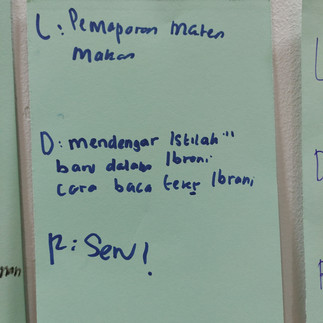 L : Pemaparan Materi
Makan
D : mendengar Istilah"
baru dalam Ibrani
cara baca teks Ibrani
P : Seru!